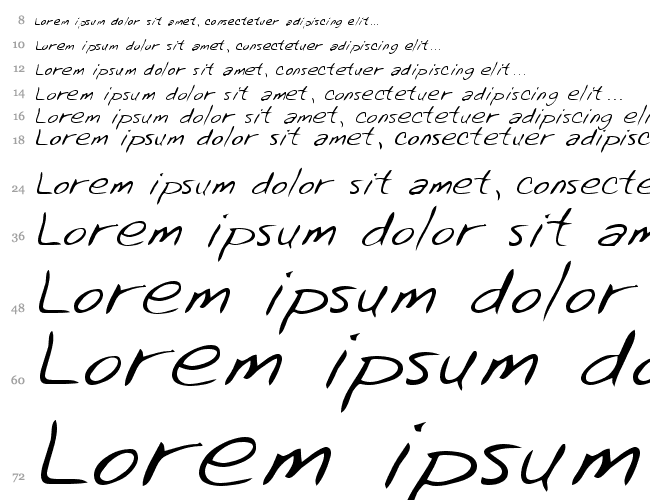 8 Lorem ipsum dolor sit amet, consectetuer adipiscing elit...
10 Lorem ipsum dolor sit amet, consectetuer adipiscing elit...
12 Lorem ipsum dolor sit amet, consectetuer adipiscing elit...
14 Lorem ipsum dolor sit amet, consectetuer adipiscing elit...
16 Lorem ipsum dolor sit amet, consectetuer adipiscing eli
18 Lorem ipsum dolor sit amet, consectetuer adipisc
24 Lorem ipsum dolor sit amet, consecte
36 Lorem ipsum dolor sit am
48 Lorem ipsum dolor
60 Lorem ipsum do
72 Lorem ipsum